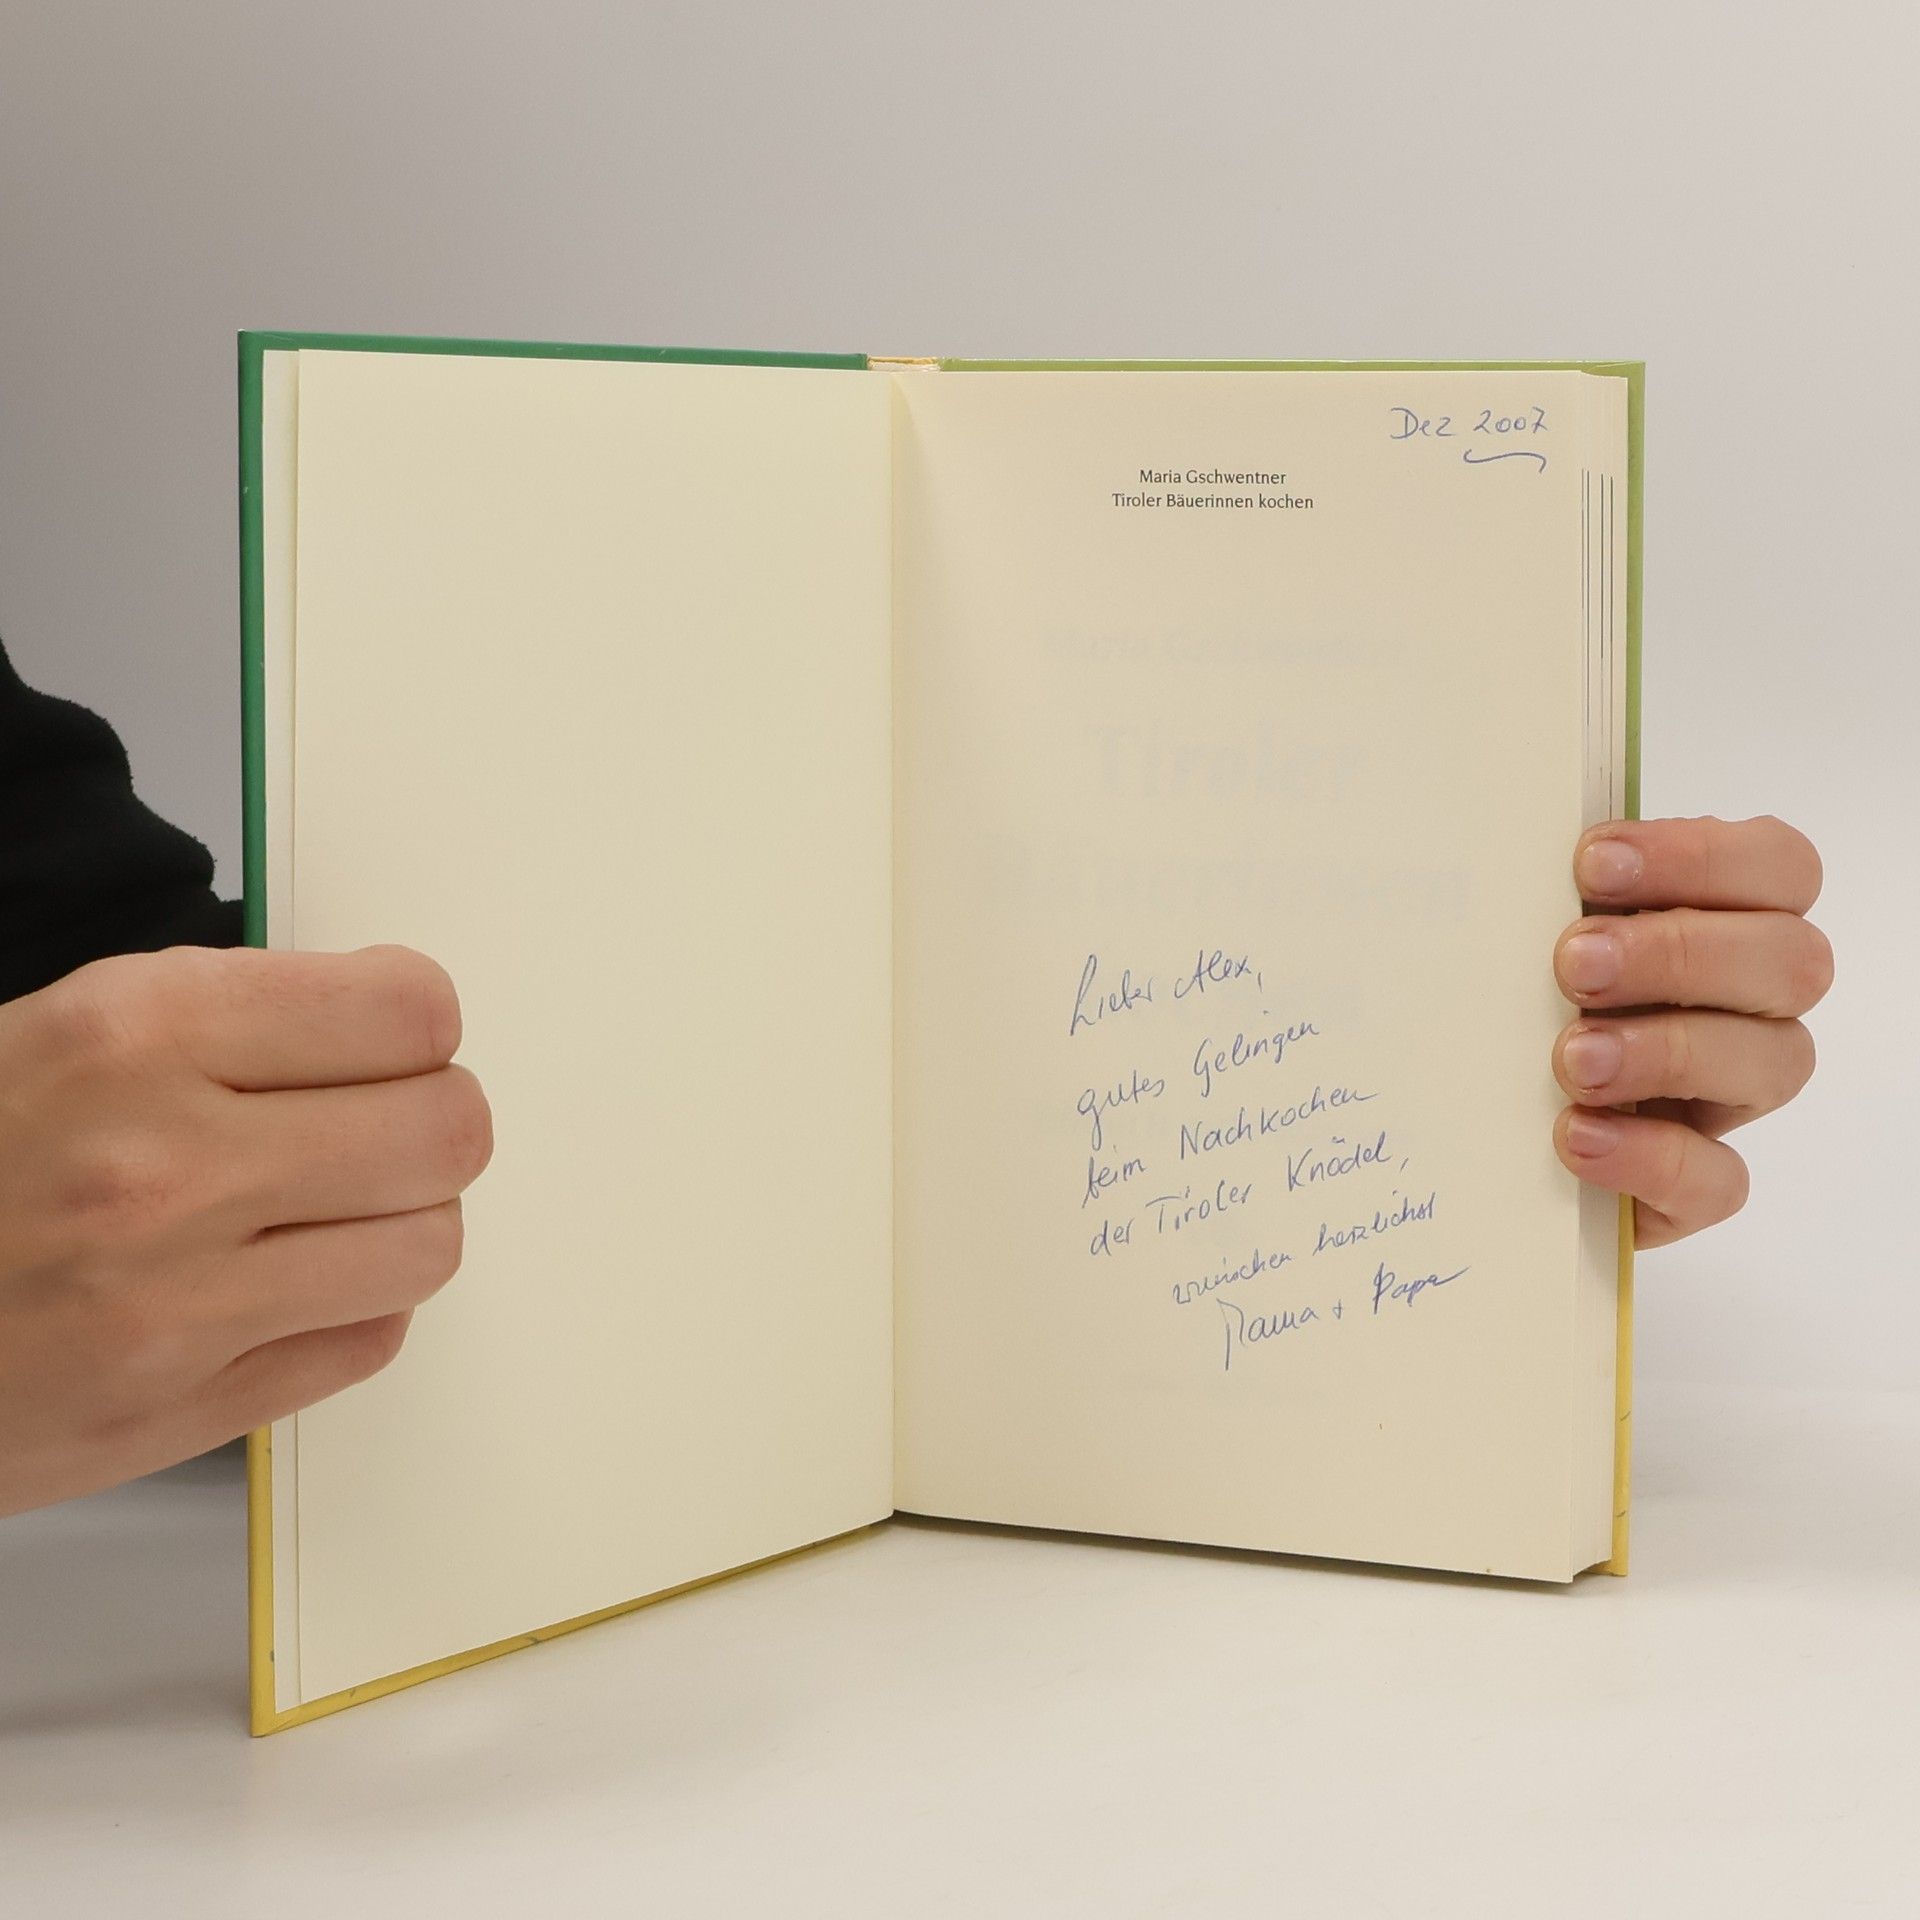 Dez 2007
Maria Gschwentner
Tiroler Bäuerinnen kochen
Lieber Alex,
gutes Gelingen
beim Nachkochen
der Tiroler Knödel,
wünschen herzlichst
Mama + Papa